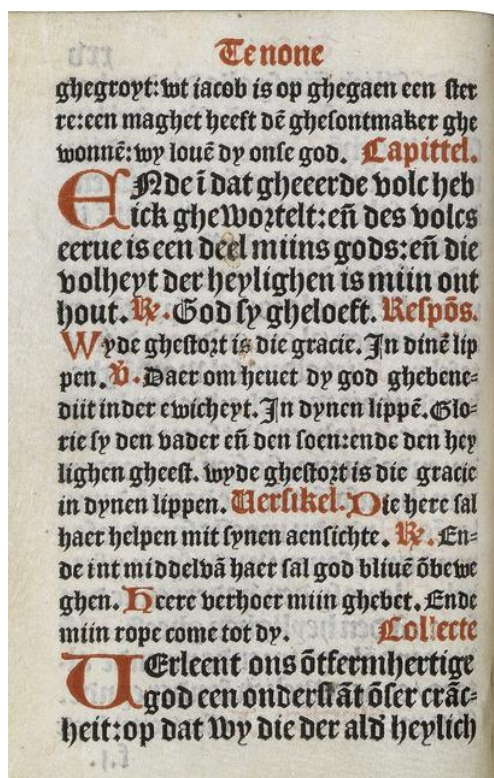 Te none
ghegroyt: wt iacob is op ghegaen een ster
re: een maghet heeft dē ghesontmaker ghe
wonnē: wy louē dy onse god. Capittel.
ENde ī dat gheeerde volc heb
ick ghewortelt: eñ des volcs
eerue is een deel miins gods: eñ die
volheyt der heylighen is miin ont
hout. ℟. God sy gheloeft. Respōs.
Wyde ghestort is die gracie. In dinē lip
pen. ℣. Daer om heuet dy god ghebene⸗
diit in der ewicheyt. In dynen lippē. Glo⸗
rie sy den vader eñ den soen: ende den hey
lighen gheest. wyde ghestort is die gracie
in dynen lippen. Uersikel. Die here sal
haer helpen mit synen aensichte. ℟. En⸗
de int middel vā haer sal god bliuē ōbewe
ghen. Heere verhoer miin ghebet. Ende
miin rope come tot dy. Collecte
VErleent ons ōtfermhertige
god een onderstāt ōser crāc⸗
heit: op dat wy die der ald' heylich